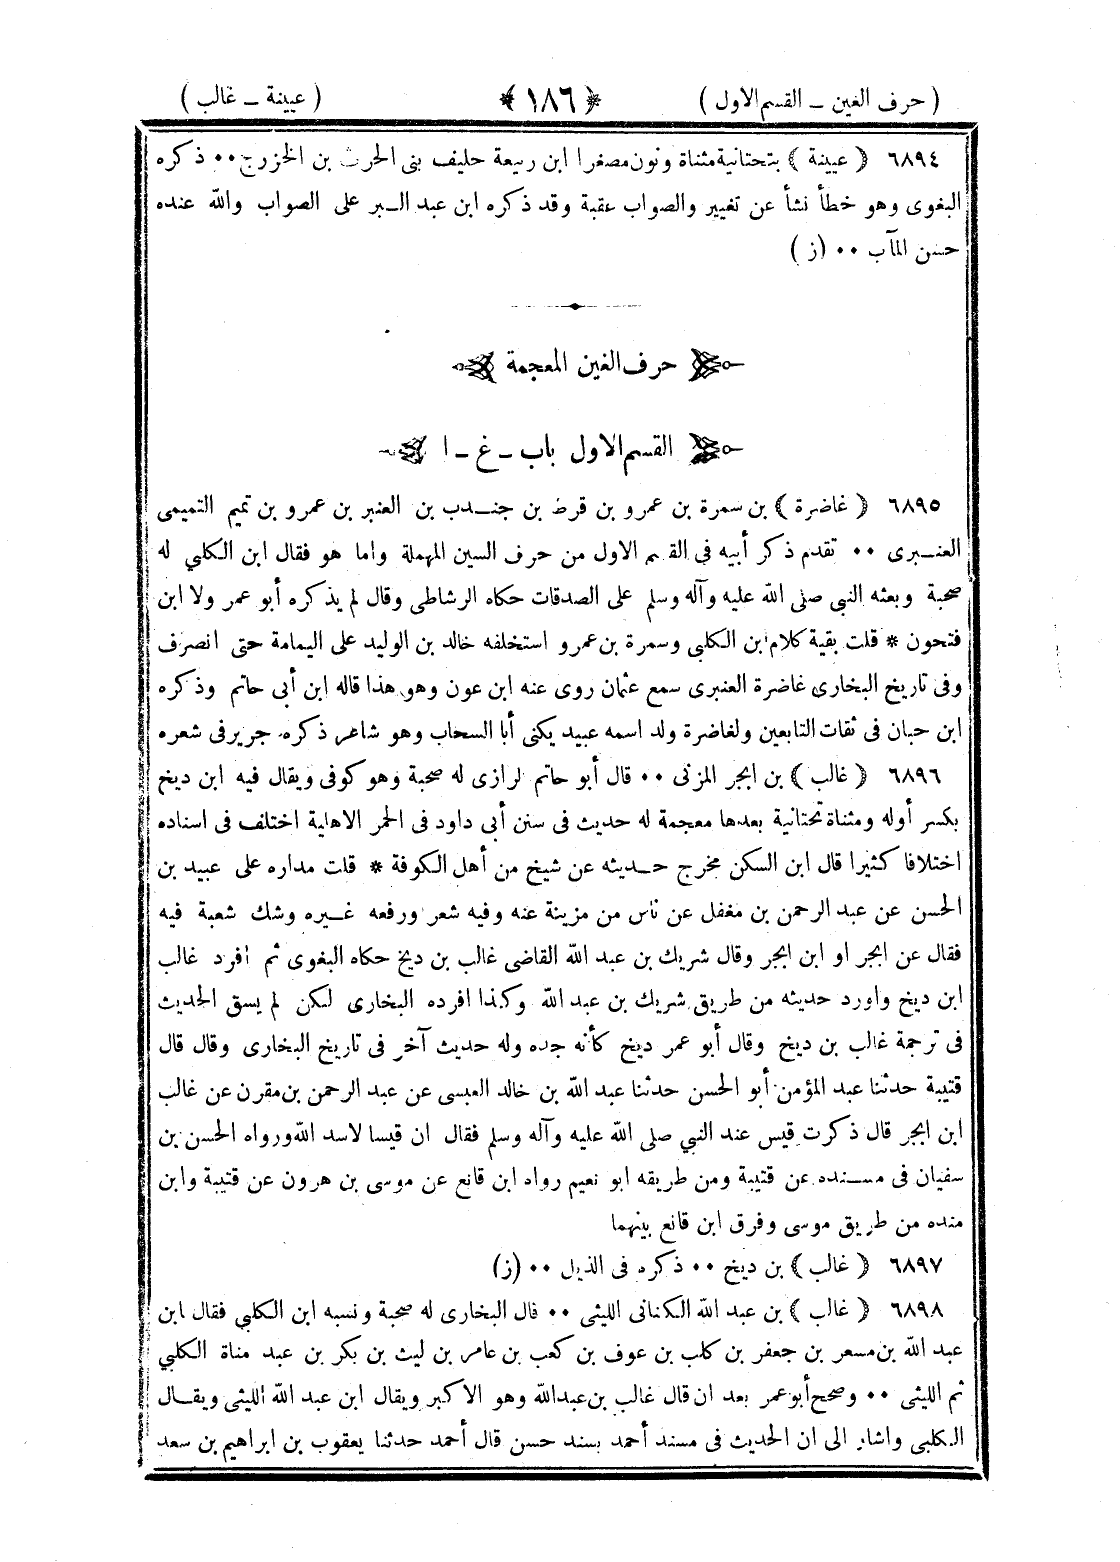 ( حرف الغين ــ القسم الاول ) ﴿ ١٨٦ ﴾ ( عيينة ــ غالب )
٦٨٩٤ ﴿ عيينة ﴾ بتحتانية مثناة ونون مصغرا ابن ربيعة حليف بنى الحرث بن الخزرج ٠٠ ذكره
البغوى وهو خطأ نشأ عن تغيير والصواب عقبة وقد ذكره ابن عبد البر على الصواب والله عنده
حسن المآب ٠٠ ( ز )
حرف الغين المعجمة
القسم الاول باب ــ غ ــ ا
٦٨٩٥ ﴿ غاضرة ﴾ بن سمرة بن عمرو بن قرط بن جنــدب بن العنبر بن عمرو بن تميم التميمى
العنــبرى ٠٠ تقدم ذكر أبيه فى القسم الاول من حرف السين المهملة واما هو فقال ابن الكلبي له
صحبة وبعثه النبي صلى الله عليه وآله وسلم على الصدقات حكاه الرشاطى وقال لم يذكره أبو عمر ولا ابن
فتحون * قلت بقية كلام ابن الكلبى وسمرة بن عمرو استخلفه خالد بن الوليد على اليمامة حتى انصرف
وفى تاريخ البخارى غاضرة العنبرى سمع عثمان روى عنه ابن عون وهو هذا قاله ابن أبي حاتم وذكره
ابن حبان فى ثقات التابعين ولغاضرة ولد اسمه عبيد يكنى أبا السحاب وهو شاعر ذكره جرير فى شعره
٦٨٩٦ ﴿ غالب ﴾ بن ابجر المزنى ٠٠ قال أبو حاتم لرازى له صحبة وهو كوفى ويقال فيه ابن ديخ
بكسر أوله ومثناة تحتانية بعدها معجمة له حديث فى سنن أبي داود فى الحمر الاهلية اختلف فى اسناده
اختلافا كثيرا قال ابن السكن مخرج حــديثه عن شيخ من أهل الكوفة * قلت مداره على عبيد بن
الحسن عن عبد الرحمن بن مغفل عن ناس من مزينة عنه وفيه شعر ورفعه غــيره وشك شعبة فيه
فقال عن ابجر او ابن ابجر وقال شريك بن عبد الله القاضى غالب بن ديخ حكاه البغوى ثم افرد غالب
ابن ديخ واورد حديثه من طريق شريك بن عبد الله وكذا افرده البخارى لكن لم يسق الحديث
فى ترجمة غالب بن ديخ وقال أبو عمر ديخ كأنه جده وله حديث آخر فى تاريخ البخارى وقال قال
قتيبة حدثنا عبد المؤمن أبو الحسن حدثنا عبد الله بن خالد العبسى عن عبد الرحمن بن مقرن عن غالب
ابن ابجر قال ذكرت قيس عند النبي صلى الله عليه وآله وسلم فقال ان قيسا لاسد الله ورواه الحسن بن
سفيان فى مســنده عن قتيبة ومن طريقه ابو نعيم رواه ابن قانع عن موسى بن هرون عن قتيبة وابن
منده من طريق موسى وفرق ابن قانع بينهما
٦٨٩٧ ﴿ غالب ﴾ بن ديخ ٠٠ ذكره فى الذيل ٠٠ (ز)
٦٨٩٨ ﴿ غالب ﴾ بن عبد الله الكنانى الليثى ٠٠ قال البخارى له صحبة ونسبه ابن الكلبي فقال ابن
عبد الله بن مسعر بن جعفر بن كلب بن عوف بن كعب بن عامر بن ليث بن بكر بن عبد مناة الكلبي
ثم الليثى ٠٠ وصحح أبو عمر بعد ان قال غالب بن عبدالله وهو الاكبر ويقال ابن عبد الله الليثى ويقــال
الكلبي واشار الى ان الحديث فى مسند أحمد بسند حسن قال أحمد حدثنا يعقوب بن ابراهيم بن سعد